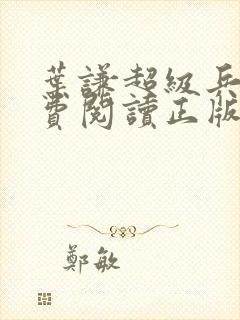 葉謙超級兵
費閱讀正版
鄭敏